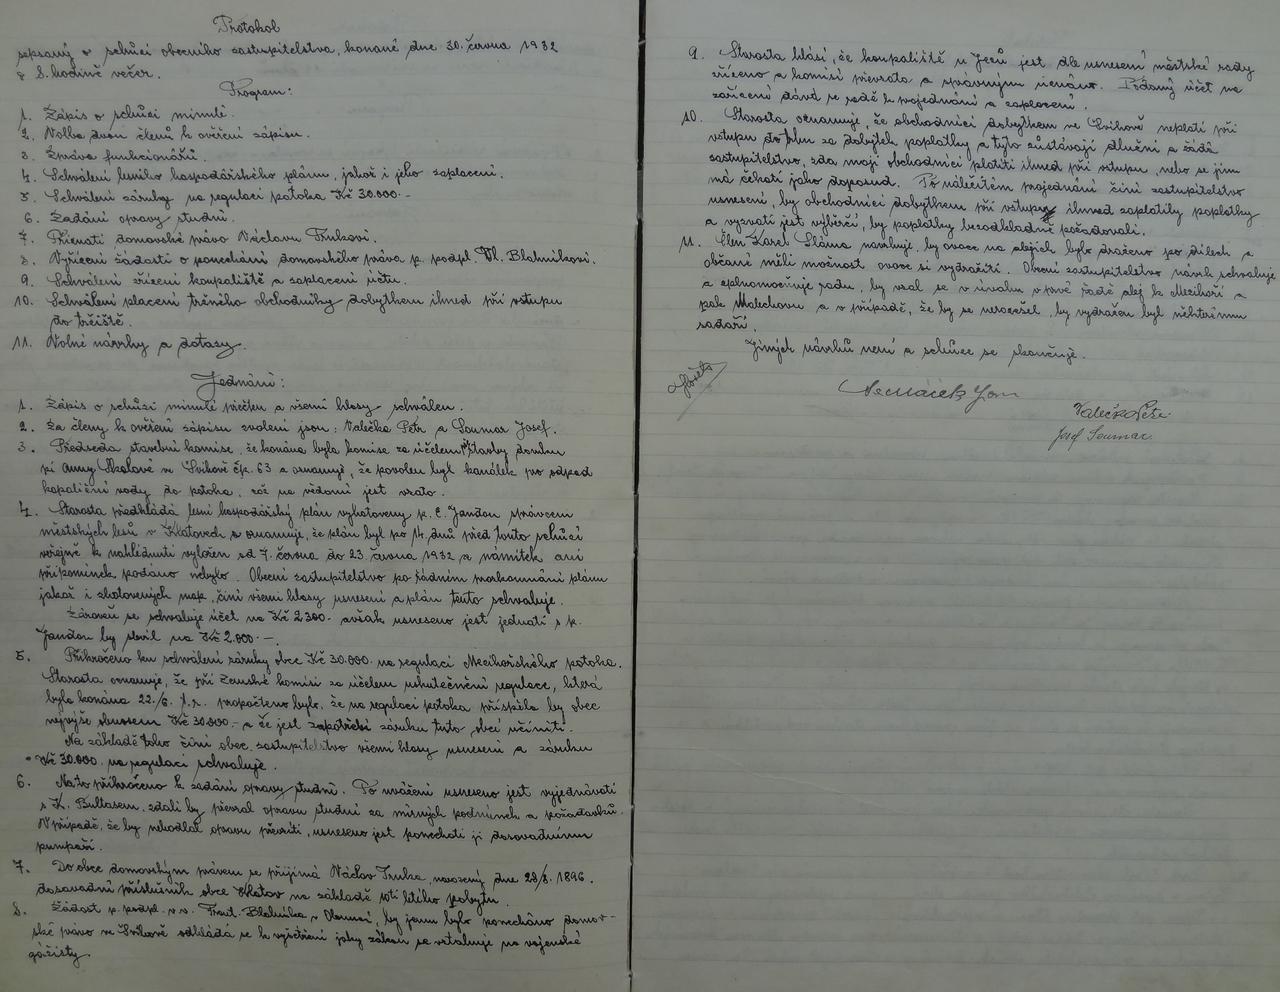 Protokol
sepsaný o schůzi obecního zastupitelstva, konané dne 30. června 1932
v 8. hodině večer.
Program:
1. Zápis o schůzi minulé.
2. Volba dvou členů k ověření zápisu.
3. Zpráva funkcionářů.
4. Schválení lesního hospodářského plánu, jakož i jeho zaplacení.
5. Schválení záruky na regulaci potoka Kč 30.000.-
6. Zadání opravy studní.
7. Přiznati domovské právo Václavu Trnkovi.
8. Vyřízení žádosti o ponechání domovského práva p. podpl. Vl. Blahníkovi.
9. Schválení zřízení koupaliště a zaplacení účtu.
10. Schválení placení tržného obchodníky dobytkem ihned při vstupu
do tržiště.
11. Volné návrhy a dotazy.
Jednání:
1. Zápis o schůzi minulé přečten a všemi hlasy schválen.
2. Za členy k ověření zápisu zvoleni jsou: Valečka Petr a Soumar Josef.
3. Předseda stavební komise, že konána byla komise za účelem stavby domku
pí Anny Skalové ve Švihově čp. 63 a oznamuje, že povolen byl kanálek pro odpad
kapaliční vody do potoka, což na vědomí jest vzato.
4. Starosta předkládá lesní hospodářský plán vyhotovený p. E. Jandou správcem
městských lesů v Klatovech a oznamuje, že plán byl po 14 dnů před touto schůzí
veřejně k nahlédnutí vyložen od 7. června do 23 června 1932 a námitek ani
připomínek podáno nebylo. Obecní zastupitelstvo po řádném prozkoumání plánu
jakož i zhotovených map, činí všemi hlasy usnesení a plán tento schvaluje.
Zároveň se schvaluje účet na Kč 2.300.- avšak usneseno jest jednati s p.
Jandou by slevil na Kč 2.000.-
5. Přikročeno ku schválení záruky obce Kč 30.000. na regulaci Mecihořského potoka.
Starosta oznamuje, že při Zemské komisi za účelem uskutečnění regulace, která
byla konána 22./6. t.r. propočteno bylo, že na regulaci potoka příspěla by obec
nejvýše obnosem Kč 30.000.- a že jest zapotřebí záruku tuto obcí učiniti.
Na základě toho činí obec. zastupitelstvo všemi hlasy usnesení a záruku
Kč 30.000. na regulaci schvaluje.
6. Nato přikročeno k zadání opravy studní. Po uvážení usneseno jest vyjednávati
s K. Bultasem, zdali by převzal opravu studní za mírných podmínek a požadavků.
V případě, že by nehodlal opravu převzíti, usneseno jest ponechati ji dosavadnímu
pumpaři.
7. Do obce domovským právem se přijímá Václav Trnka, narozený dne 28/8. 1896.
dosavadní příslušník obce Klatov na základě 10ti letého pobytu.
8. Žádost p. podpl. v.v. Frant. Blahníka v Olomouci, by jemu bylo ponecháno domov-
ské právo ve Švihově odkládá se k vyšetření jaký zákon se vztahuje na vojenské
gážisty.
9. Starosta hlásí, že koupaliště u Jezů jest dle usnesení městské rady
zřízeno a komisí převzato a správným uznáno. Podaný účet na
zařízení dává se radě k projednání a zaplacení.
10. Starosta oznamuje, že obchodníci dobytkem ve Švihově neplatí při
vstupu do trhu za dobytek poplatky a tyto zůstávají dlužni a žádá
zastupitelstvo, zda mají obchodníci platiti ihned při vstupu, nebo se jim
má čekati jako doposud. Po náležitém projednání činí zastupitelstvo
usnesení, by obchodníci dobytkem při vstupu ihned zaplatily poplatky
a vyzvati jest výběrčí, by poplatky bezodkladně požadovali.
11. Člen Karel Sláma navrhuje, by ovoce na alejích bylo draženo po dílech a
občané měli možnost ovoce si vydražiti. Obecní zastupitelstvo návrh schvaluje
a splnomocňuje radu, by vzal se v úvahu v prvé řadě alej k Mecihoři a
pak Malechovu a v případě, že by se neosvěžel, by vydražen byl některému
sadaři.
Jiných návrhů není a schůze se skončuje.
Nemáček Jan
Valečka Petr
Josef Soumar